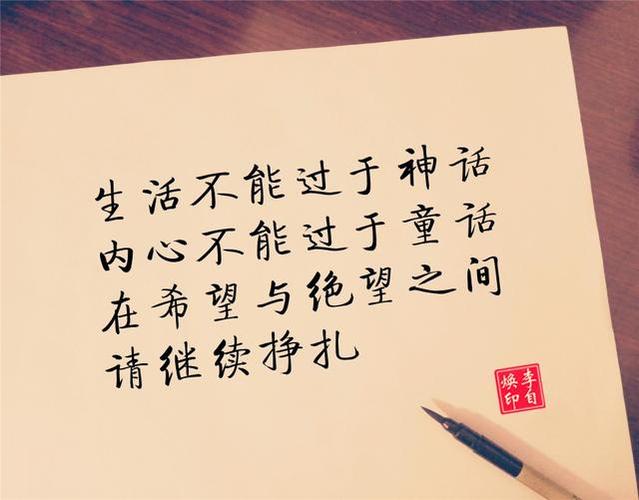 生活不能过于神话
内心不能过于童话
在希望与绝望之间
请继续挣扎
李自
焕印